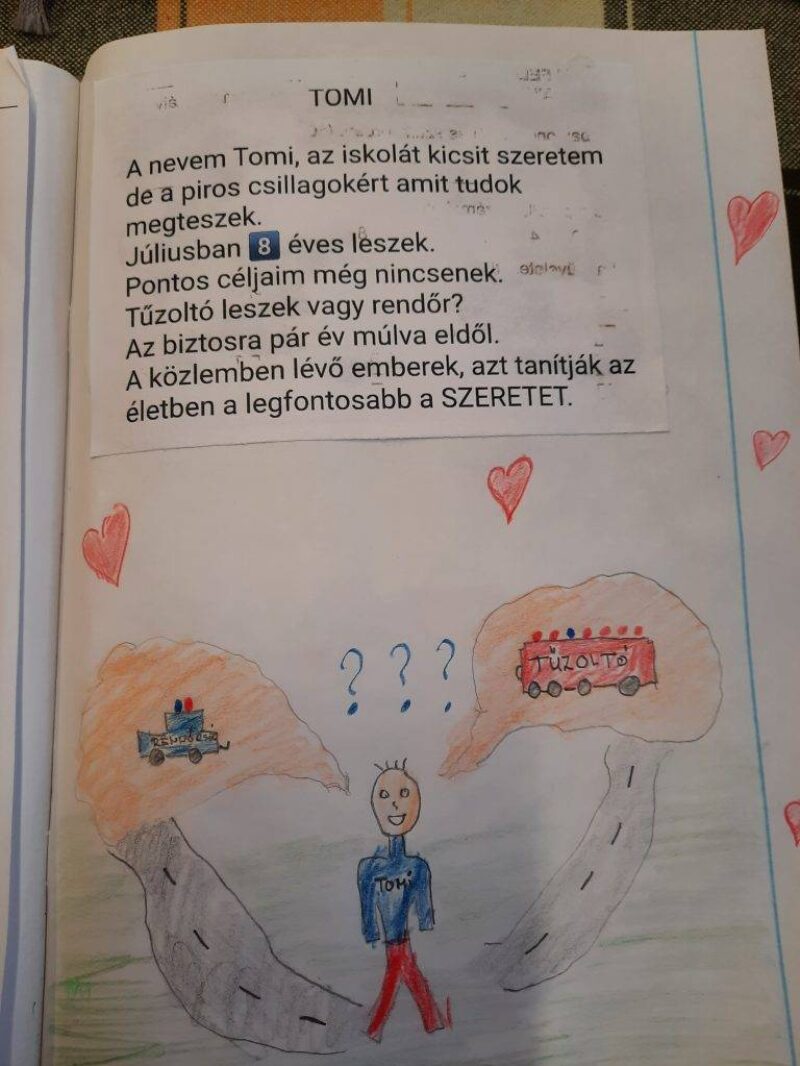 TOMI
A nevem Tomi, az iskolát kicsit szeretem
de a piros csillagokért amit tudok
megteszek.
Júliusban 8 éves leszek.
Pontos céljaim még nincsenek.
Tűzoltó leszek vagy rendőr?
Az biztosra pár év múlva eldől.
A közlemben lévő emberek, azt tanítják az
életben a legfontosabb a SZERETET.
? ? ?
TŰZOLTÓ
TOMI